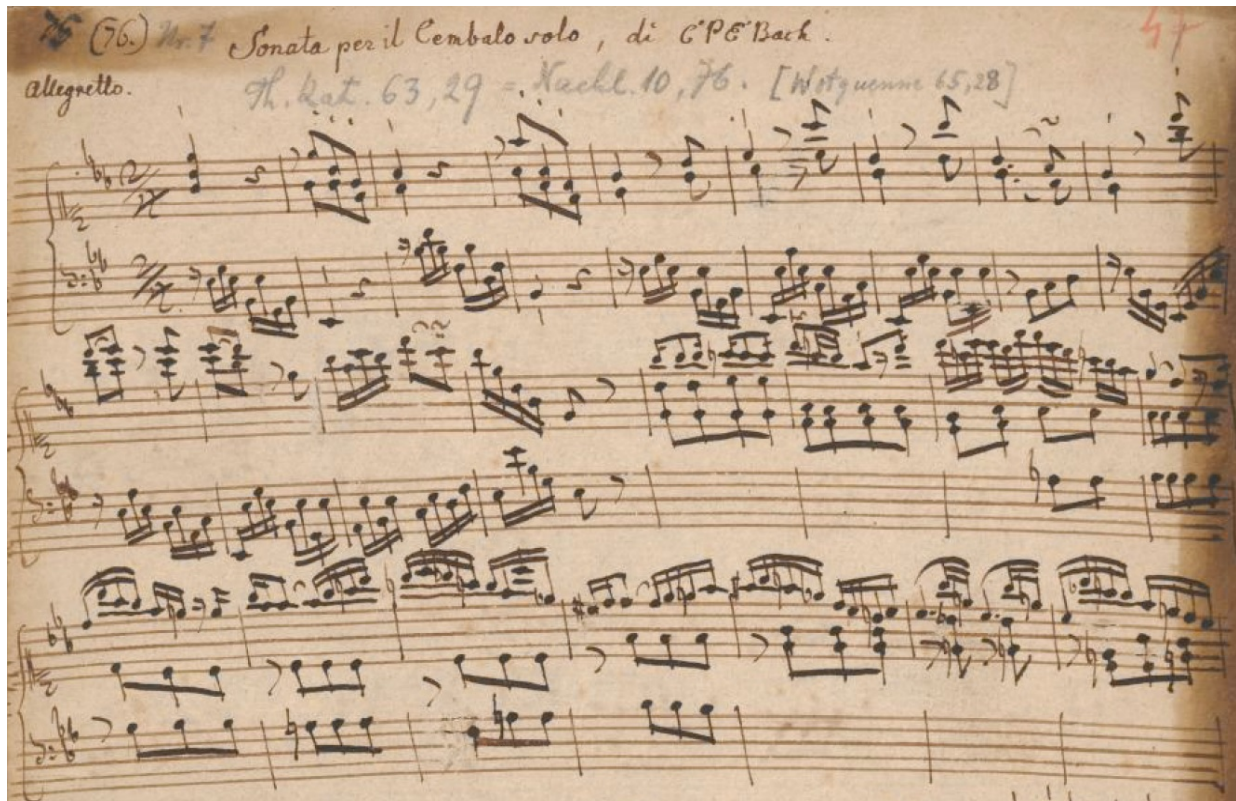 76 (76.) Nr. 7 Sonata per il Cembalo solo, di C P E Bach. 47
Allegretto.
Th. Kat. 63, 29 = Nachl. 10, 76. [Wotquenne 65, 28]